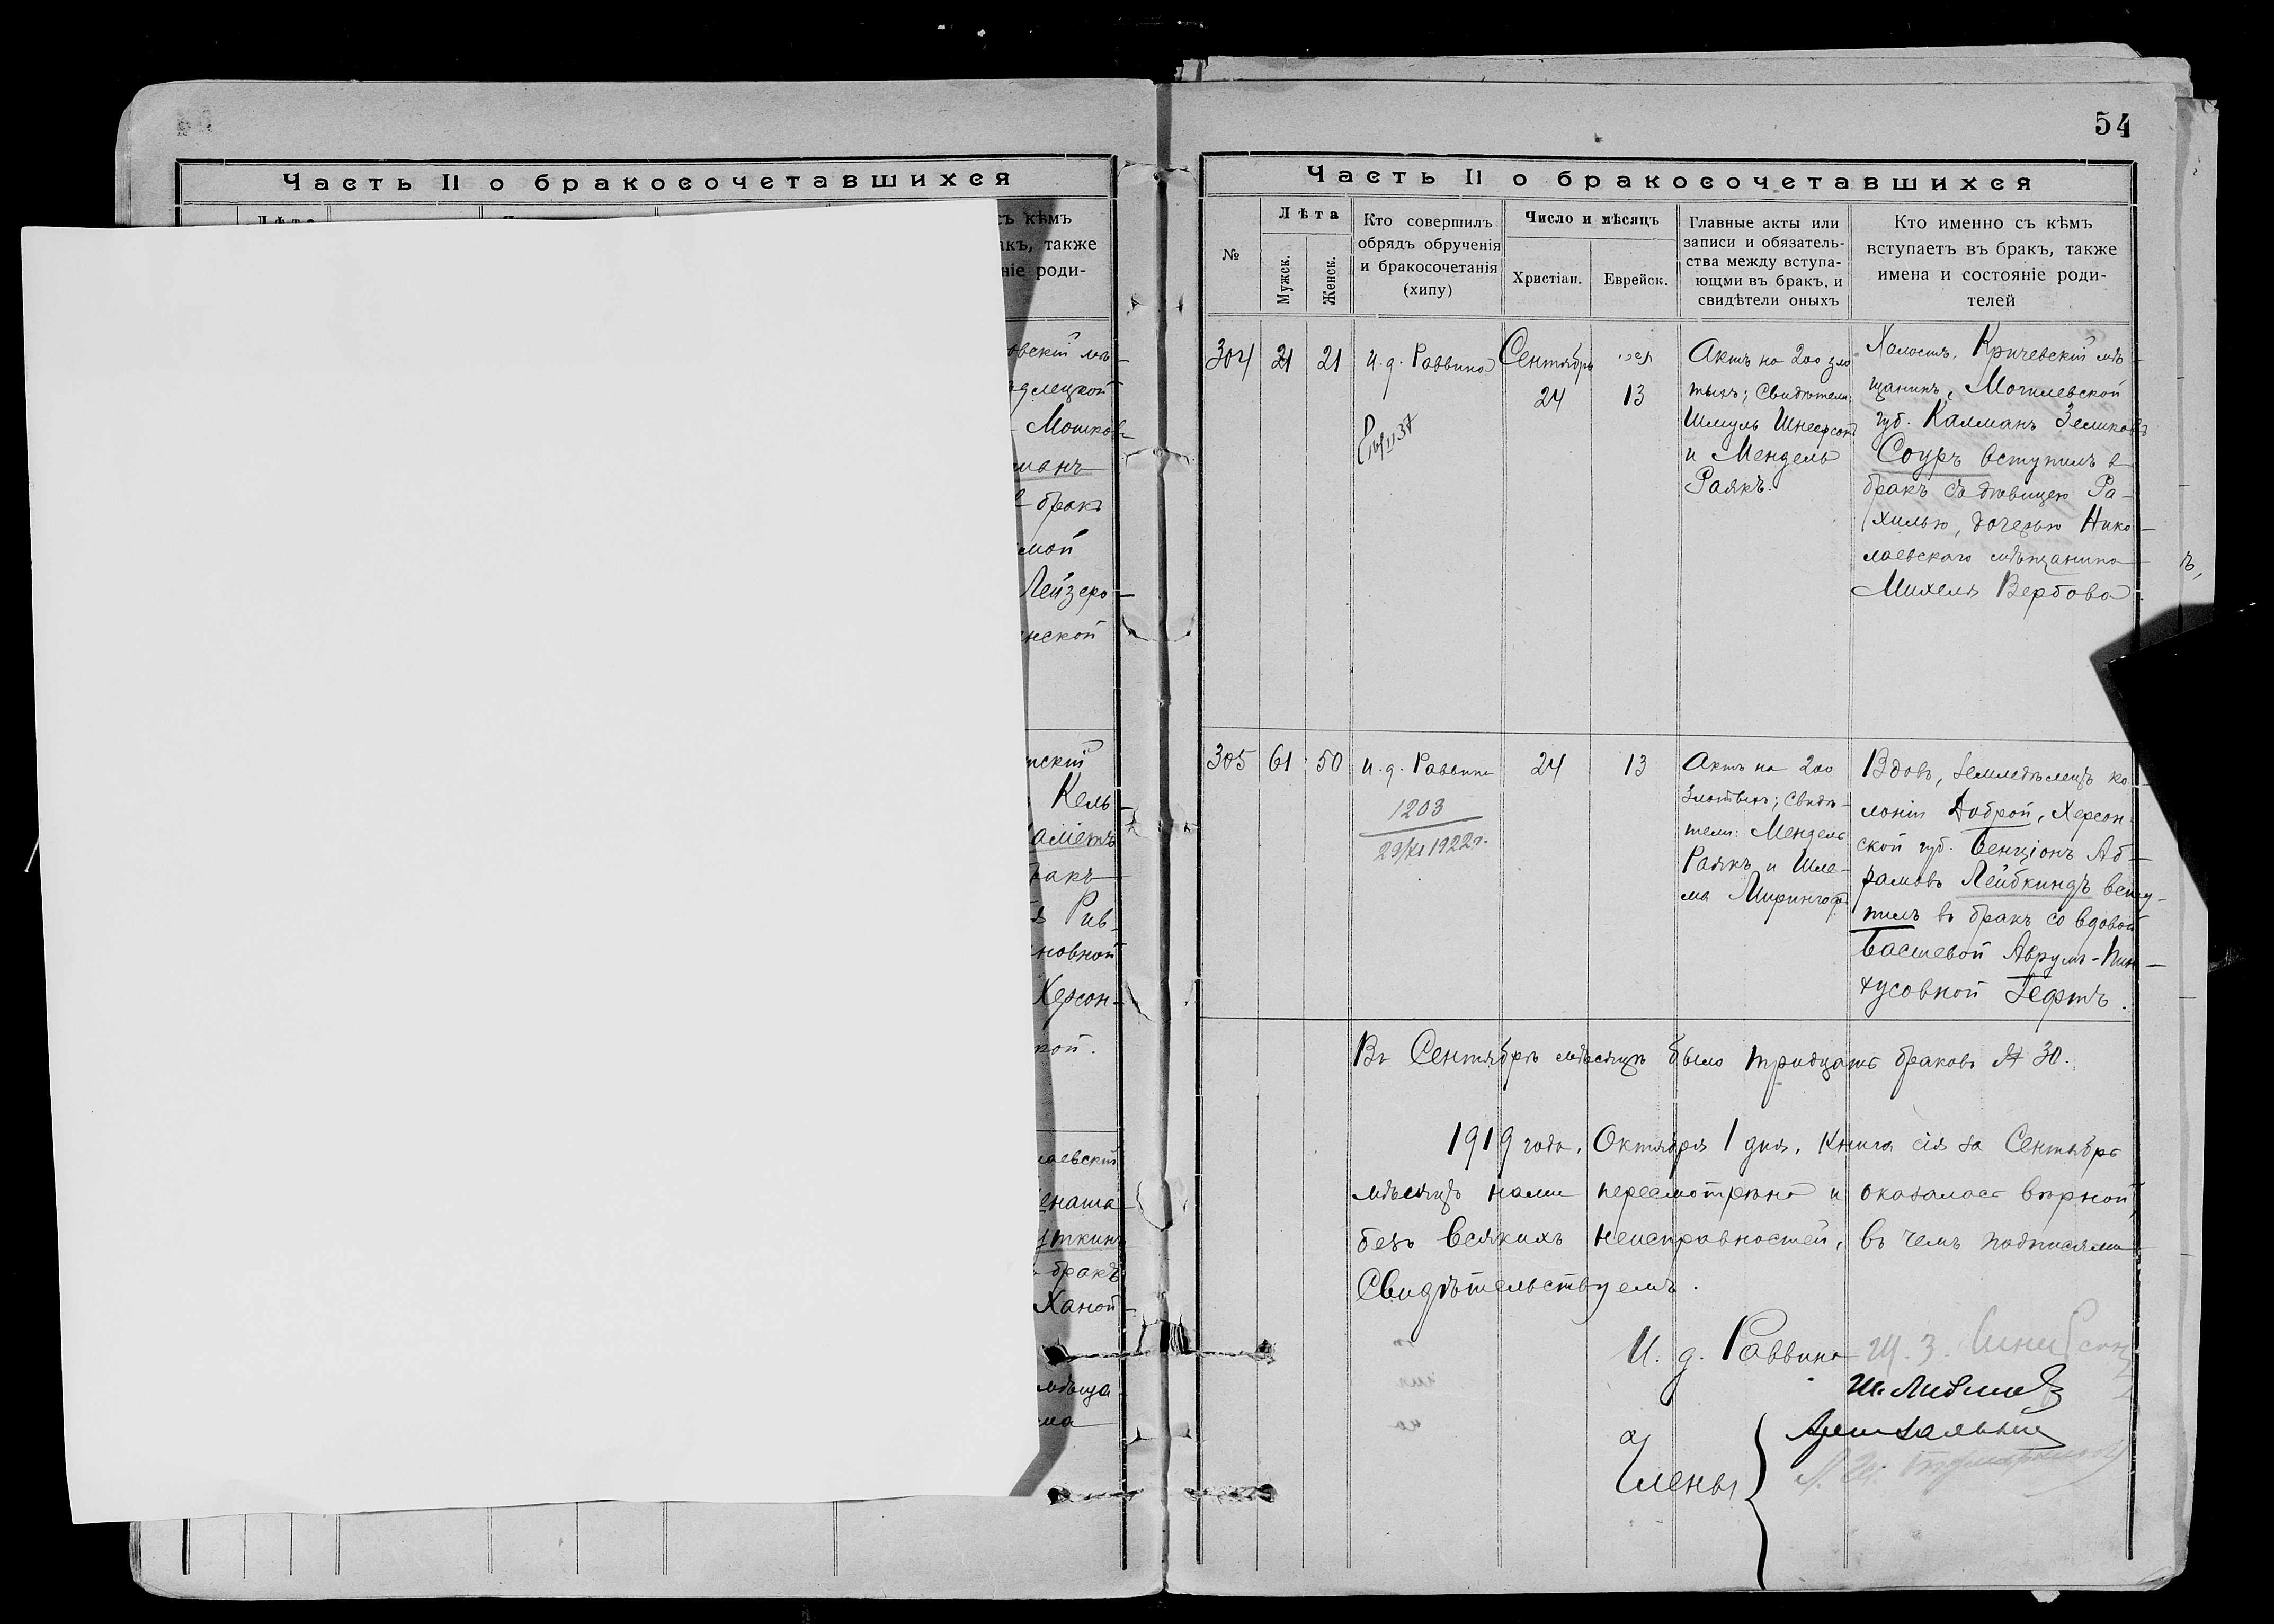 Часть II о бракосочетавшихся
Лѣта
съ кѣмъ
акъ, также
ніе роди-
овскій мѣ-
длецкой
Мошков
манъ
брак
мой
Лейзеро-
нской
тскій
Кель-
бракъ
я Рив-
новной
Херсон-
кой.
лаевскій
енаша
бракъ
Ханой-
мѣща-
54
Часть II о бракосочетавшихся
№
Лѣта
Мужск.
Женск.
Кто совершилъ
обрядъ обрученія
и бракосочетанія
(хипу)
Число и мѣсяцъ
Христіан.
Еврейск.
Главные акты или
записи и обязатель-
ства между вступа-
ющми въ бракъ, и
свидѣтели оныхъ
Кто именно съ кѣмъ
вступаетъ въ бракъ, также
имена и состояніе роди-
телей
304
21
21
И. д. Раввина
Сентябрь
24
13
Актъ на 200 зло
тыхъ; Свидѣтели:
Шмуль Шнеерсонъ
и Мендель
Раякъ.
Холостъ, Кричевскій мѣ-
щанинъ, Могилевской
губ. Калманъ Зеликовъ
Соуръ вступилъ в
бракъ съ дѣвицею Ра-
хилью, дочерью Нико-
лаевскаго мѣщанина
Михеля Вербова
305
61
50
И. д. Раввина
1203
29/XI 1922 г.
24
13
Актъ на 200
злотыхъ; Свидѣ-
тели: Мендель
Раякъ и Шле-
ма Мирингоф
Вдовъ, земледѣлецъ ко
лоніи Доброй, Херсон-
ской губ. Бенціонъ Аб-
рамовъ Лейбкиндъ всту-
пилъ въ бракъ со вдовой
Басшевой Аврумъ-Пин-
хусовной Зефтъ.
Въ Сентябрѣ мѣсяцѣ было тридцать браковъ № 30.
1919 года, Октября 1 дня, Книга сія за Сентябрь
мѣсяцъ нами пересмотрѣна и оказалась вѣрной,
безъ всякихъ неисправностей, въ чемъ подписями
Свидѣтельствуемъ.
И. д. Раввина
Члены